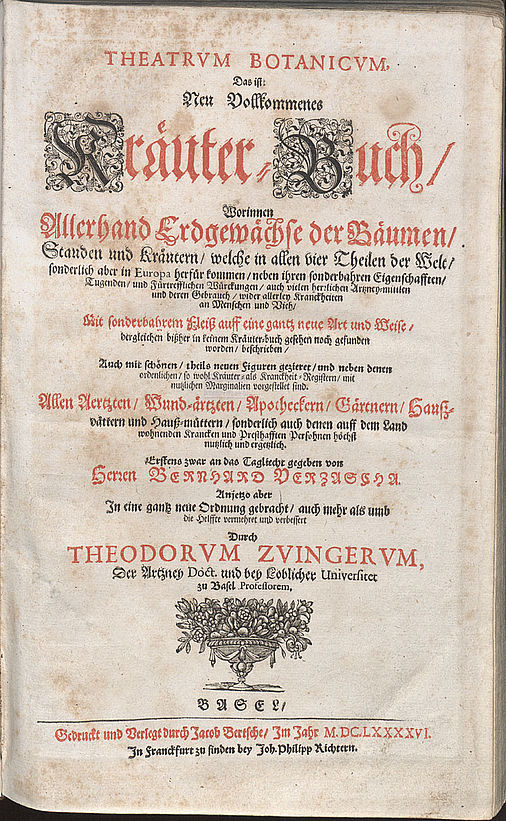 THEATRVM BOTANICVM,
Das ist:
Neu Vollkommenes
Kräuter-Buch/
Worinnen
Allerhand Erdgewächse der Bäumen/
Stauden und Kräutern/ welche in allen vier Theilen der Welt/
sonderlich aber in Europa herfür kommen/ neben ihren sonderbahren Eigenschafften/
Tugenden/ und Fürtrefflichen Würckungen/ auch vielen herrlichen Artzney-mittlen
und deren Gebrauch/ wider allerley Kranckheiten
an Menschen und Vieh/
Mit sonderbahrem Fleiß auff eine gantz neue Art und Weise/
dergleichen bißher in keinem Kräuter-buch gesehen noch gefunden
worden/ beschrieben/
Auch mit schönen/ theils neuen Figuren gezieret/ und neben denen
ordenlichen/ so wohl Kräuter- als Kranckheit-Registern/ mit
nutzlichen Marginalien vorgestellet sind.
Allen Aertzten/ Wund-ärtzten/ Apotheckern/ Gärtnern/ Hauß-
vättern und Hauß-müttern/ sonderlich auch denen auff dem Land
wohnenden Krancken und Presthafften Persohnen höchst
nutzlich und ergetzlich.
Erstens zwar an das Tagliecht gegeben von
Herren BERNHARD VERZASCHA.
Anjetzo aber
In eine gantz neue Ordnung gebracht/ auch mehr als umb
die Helffte vermehret und verbessert
Durch
THEODORVM ZVINGERVM,
Der Artzney Doct. und bey Loblicher Universitet
zu Basel Professorem,
BASEL/
Gedruckt und Verlegt durch Jacob Bertsche/ Im Jahr M.DC.LXXXXVI.
In Franckfurt zu finden bey Joh. Philipp Richtern.